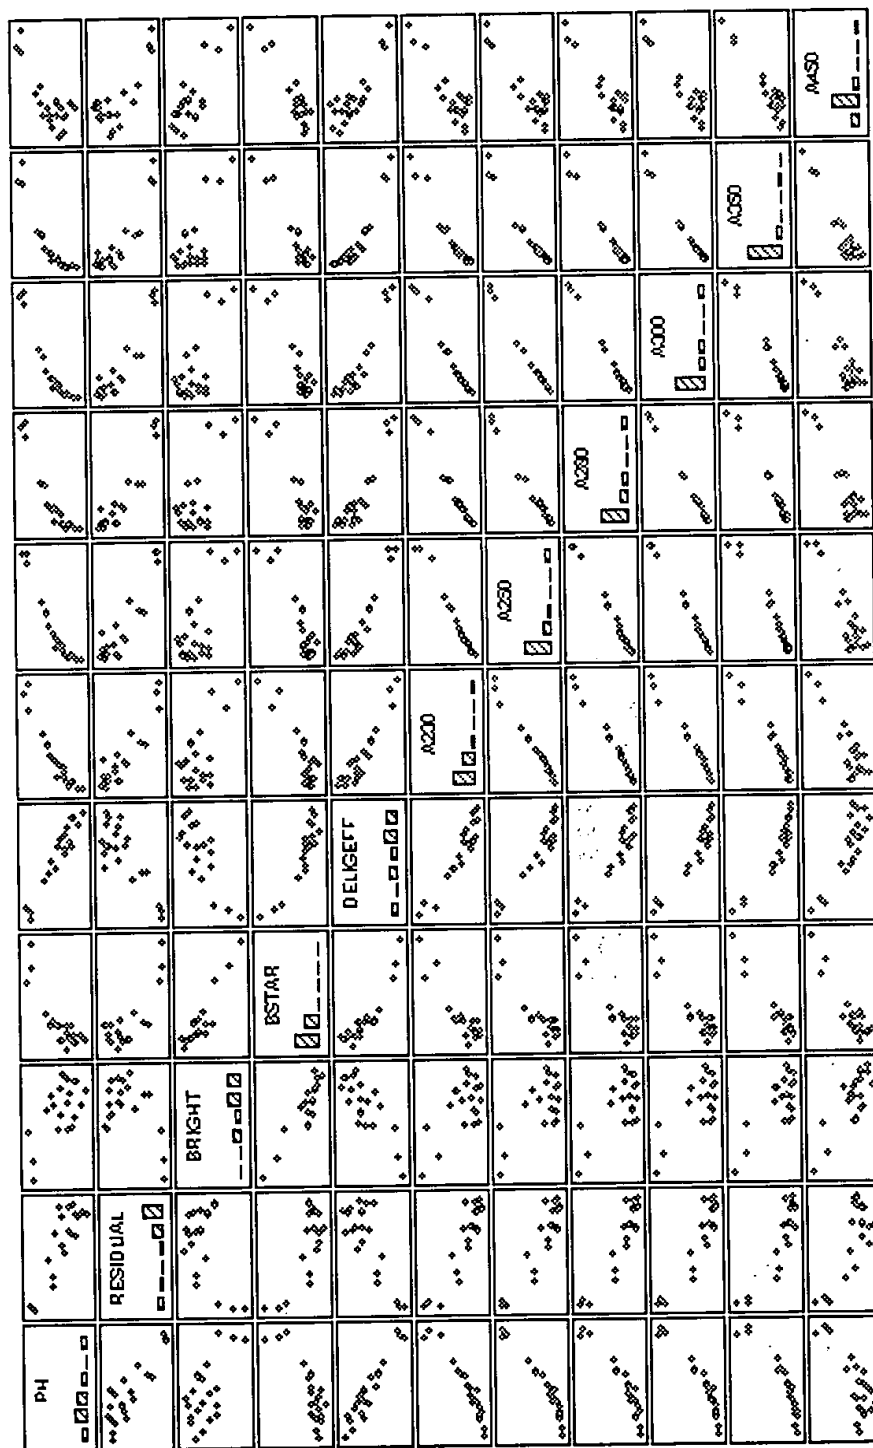 PH
RESIDUAL
BRIGHT
BSTAR
DELIGEFF
A280
A300
A350
A450